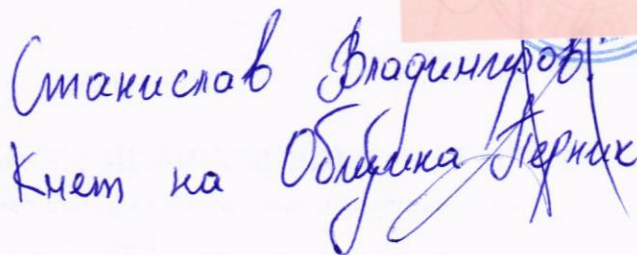 Станислав Владимиров
Кмет на Община Перник